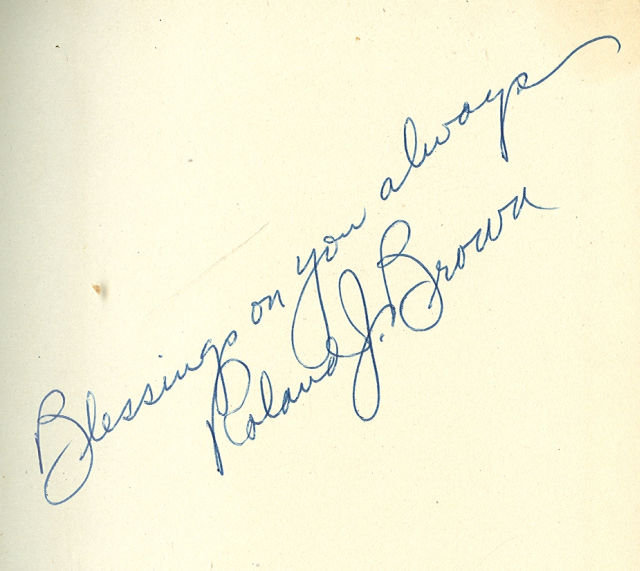 Blessings on you always
Roland J. Brown